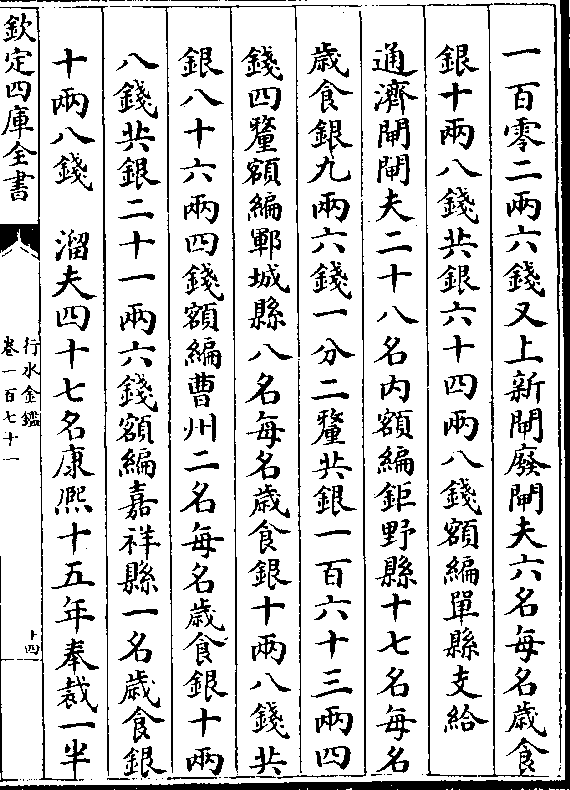 一百零二兩六錢又上新閘廢閘夫六名每名歳食
銀十兩八錢共銀六十四兩八錢額編單縣支給
通濟閘閘夫二十八名内額編鉅野縣十七名每名
歳食銀九兩六錢一分二釐共銀一百六十三兩四
錢四釐額編鄆城縣八名每名歳食銀十兩八錢共
銀八十六兩四錢額編曹州二名每名歳食銀十兩
八錢共銀二十一兩六錢額編嘉祥縣一名歳食銀
十兩八錢　溜夫四十七名康熈十五年奉裁一半
欽定四庫全書
行水金鑑
卷一百七十一
十四